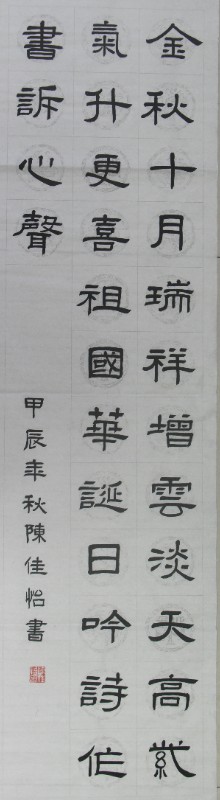 金秋十月瑞祥增雲淡天高紫
氣升更喜祖國華誕日吟詩作
書訴心聲
甲辰年秋陳佳怡書